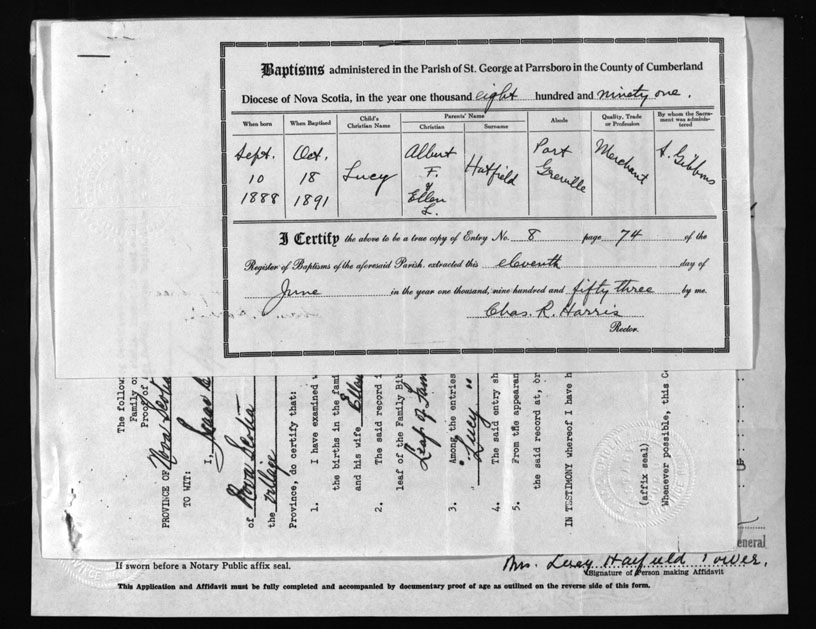 Baptisms administered in the Parish of St. George at Parrsboro in the County of Cumberland
Diocese of Nova Scotia, in the year one thousand eight hundred and ninety one.
When born When Baptised Child's Christian Name Parents' Name Christian Surname Abode Quality, Trade or Profession By whom the Sacrament was administered
Sept. 10 1888 Oct. 18 1891 Lucy Albert F. & Ellen L. Hatfield Port Greville Merchant S. Gibbons
I Certify the above to be a true copy of Entry No. 8 page 74 of the
Register of Baptisms of the aforesaid Parish, extracted this eleventh day of
June in the year one thousand, nine hundred and fifty three by me.
Chas. R. Harris
Rector.
The follow
Family or
Proof of
PROVINCE OF Nova Scotia
TO WIT:
I, Isaac
of Nova Scotia
the village
Province, do certify that:
1. I have examined
the births in the fami
and his wife Ellen
2. The said record i
leaf of the Family Bib
Leaf of Fam
3. Among the entries
"Lucy"
4. The said entry sh
5. From the appearan
the said record at, or
IN TESTIMONY whereof I have h
(affix seal)
Whenever possible, this C
eneral
If sworn before a Notary Public affix seal.
Mrs. Lucy Hatfield Tower.
(Signature of Person making Affidavit
This Application and Affidavit must be fully completed and accompanied by documentary proof of age as outlined on the reverse side of this form.